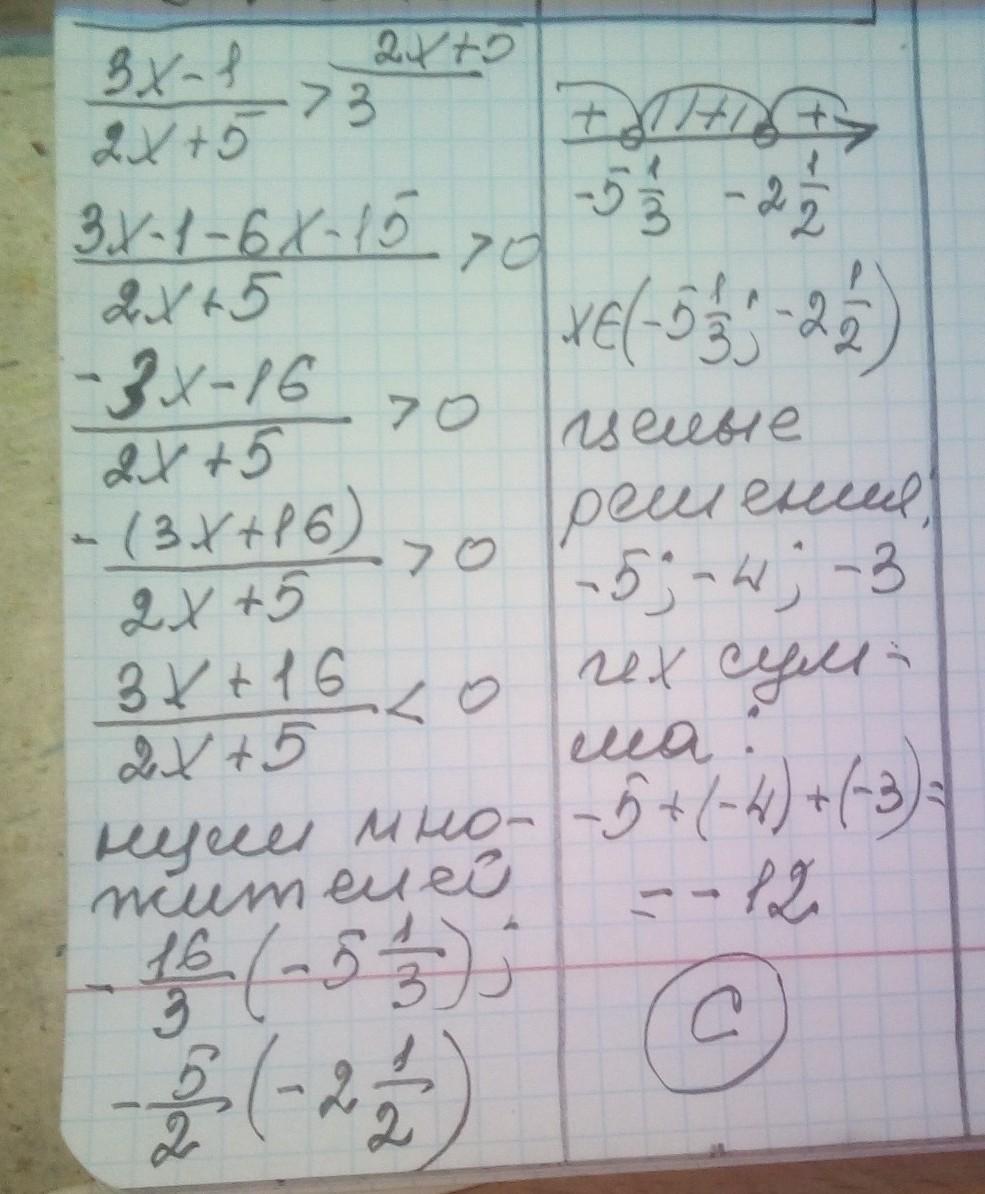 2x+5
3x-1 / 2x+5 > 3
3x-1-6x-15 / 2x+5 > 0
-3x-16 / 2x+5 > 0
-(3x+16) / 2x+5 > 0
3x+16 / 2x+5 < 0
нули мно-
жителей
-16/3 (-5 1/3);
-5/2 (-2 1/2)
+ + +
-5 1/3 -2 1/2
x∈(-5 1/3; -2 1/2)
целые
решения:
-5; -4; -3
их сум-
ма:
-5+(-4)+(-3)=
=-12
C